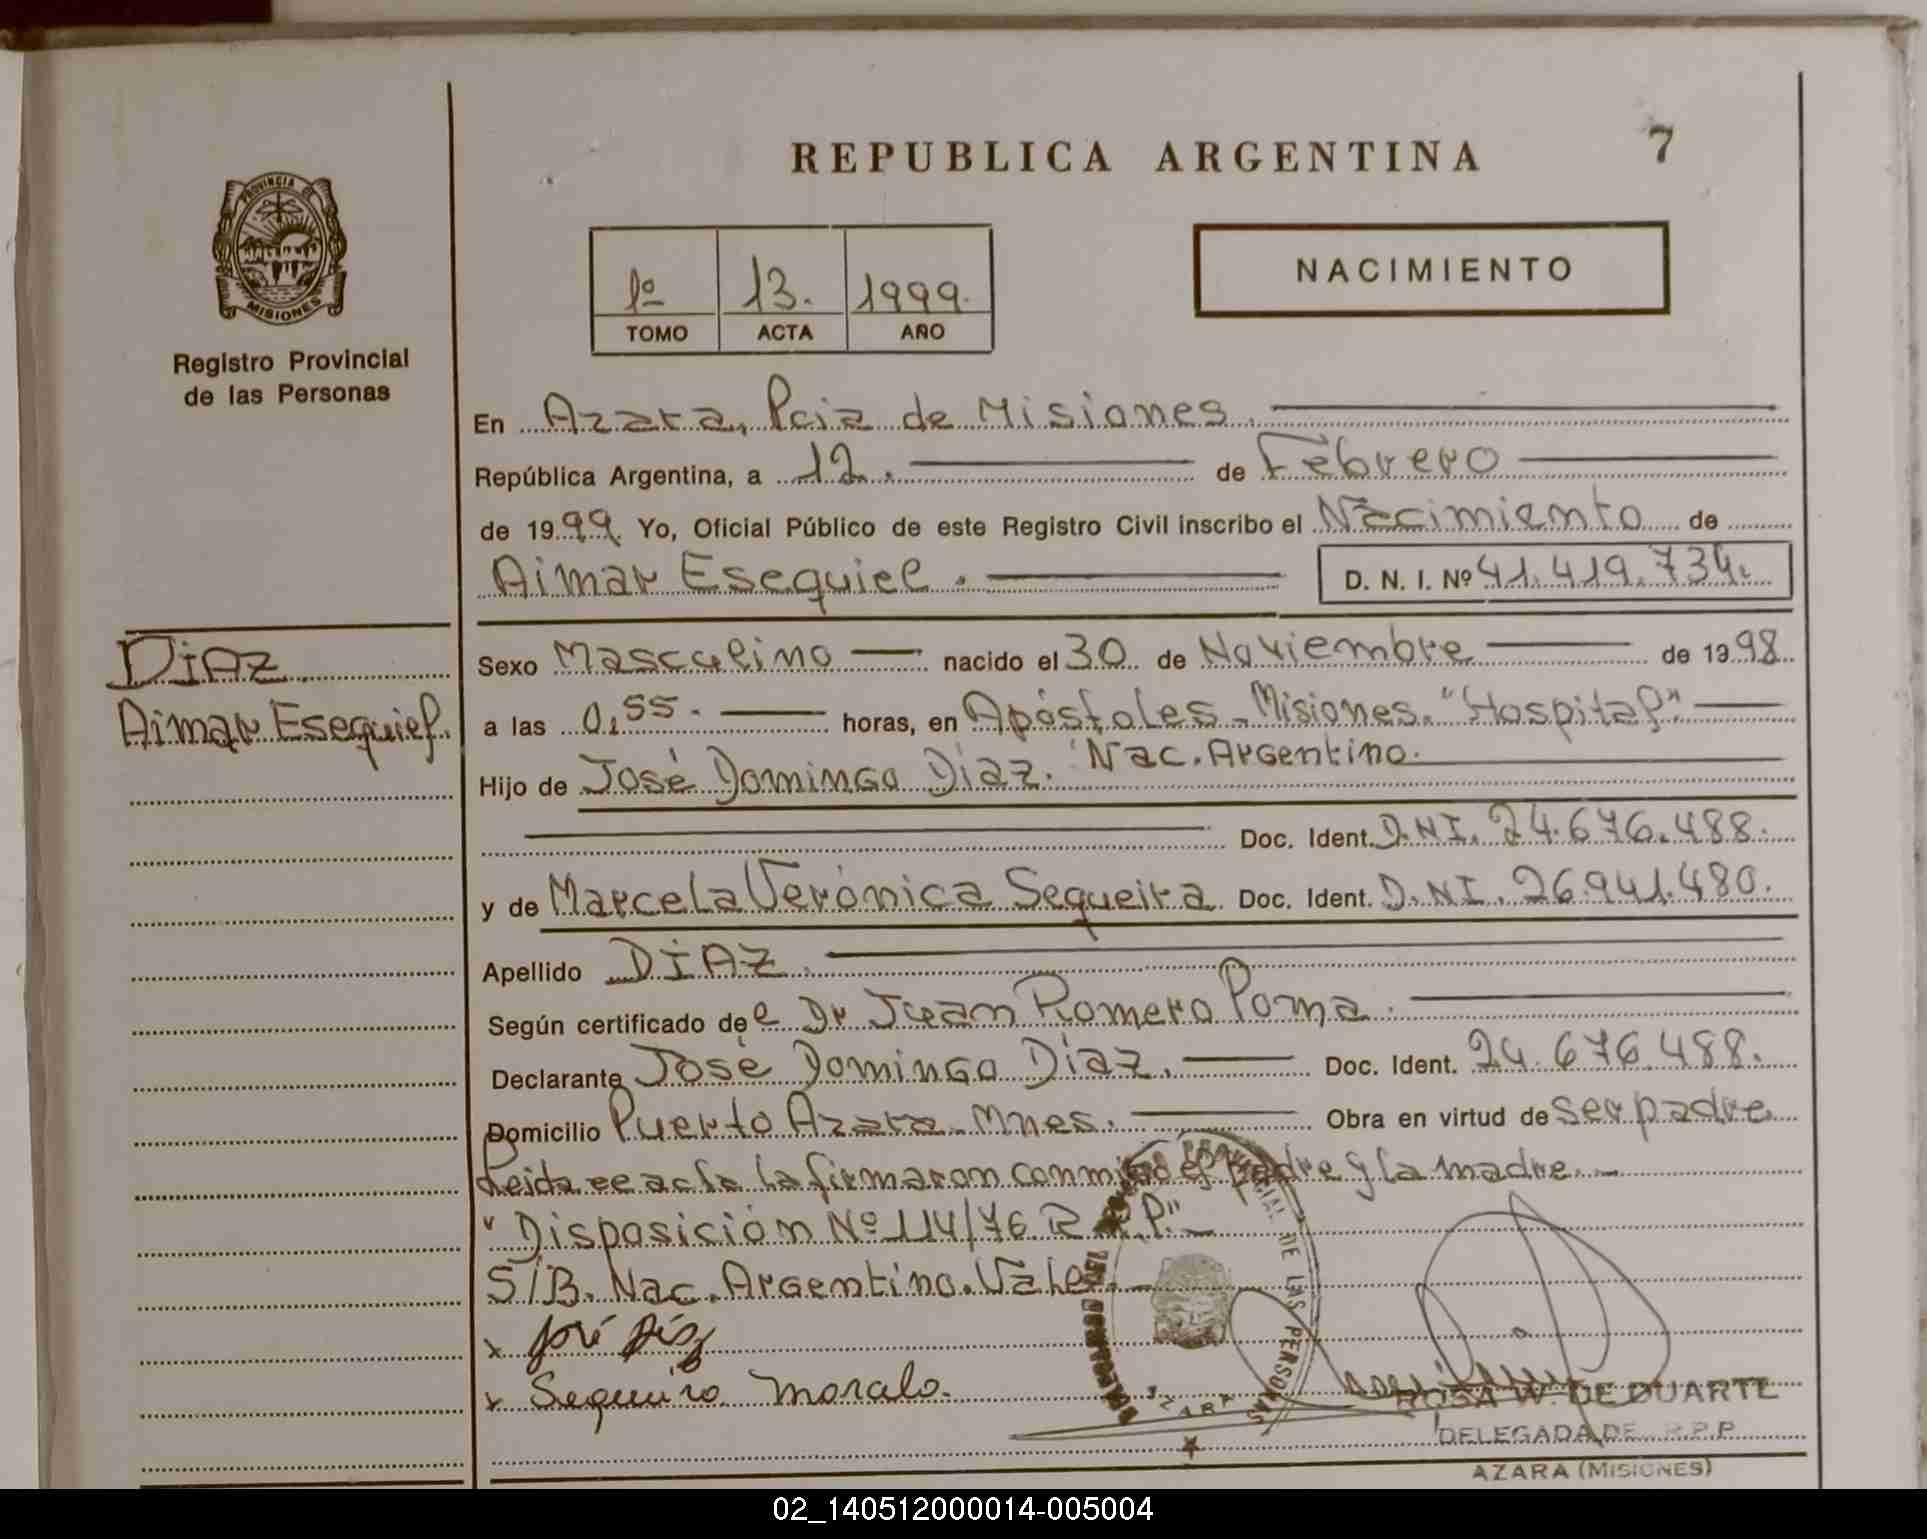 REPUBLICA ARGENTINA
7
PROVINCIA DE
MISIONES
Registro Provincial
de las Personas
1º 13. 1999.
TOMO ACTA AÑO
NACIMIENTO
En Azara, Pcia de Misiones.
República Argentina, a 12. de Febrero
de 1999. Yo, Oficial Público de este Registro Civil inscribo el Nacimiento de
Aimar Esequiel. D. N. I. Nº 41.419.734.
DiAZ
Aimar Esequiel.
Sexo Masculino nacido el 30 de Noviembre de 1998
a las 0,55. horas, en Apóstoles - Misiones. "Hospital"
Hijo de José Domingo Díaz. Nac. Argentino.
Doc. Ident. D.NI. 24.676.488.
y de Marcela Verónica Sequeira Doc. Ident. D.NI. 26.941.480.
Apellido DiAZ.
Según certificado de el Dr Juan Romero Poma.
Declarante José Domingo Díaz. Doc. Ident. 24.676.488.
Domicilio Puerto Azara - Mnes. Obra en virtud de ser padre
Leída el acta la firmaron conmigo el padre y la madre. -
"Disposición Nº 114/76 R.P.P." -
S/B. Nac. Argentino. Vale. -
x José Díaz
x Sequeira Marcela.
PROVINCIAL DE LAS PERSONAS
AZARA
ROSA W. DE DUARTE
DELEGADA DE R.P.P
AZARA (MISIONES)
02_140512000014-005004